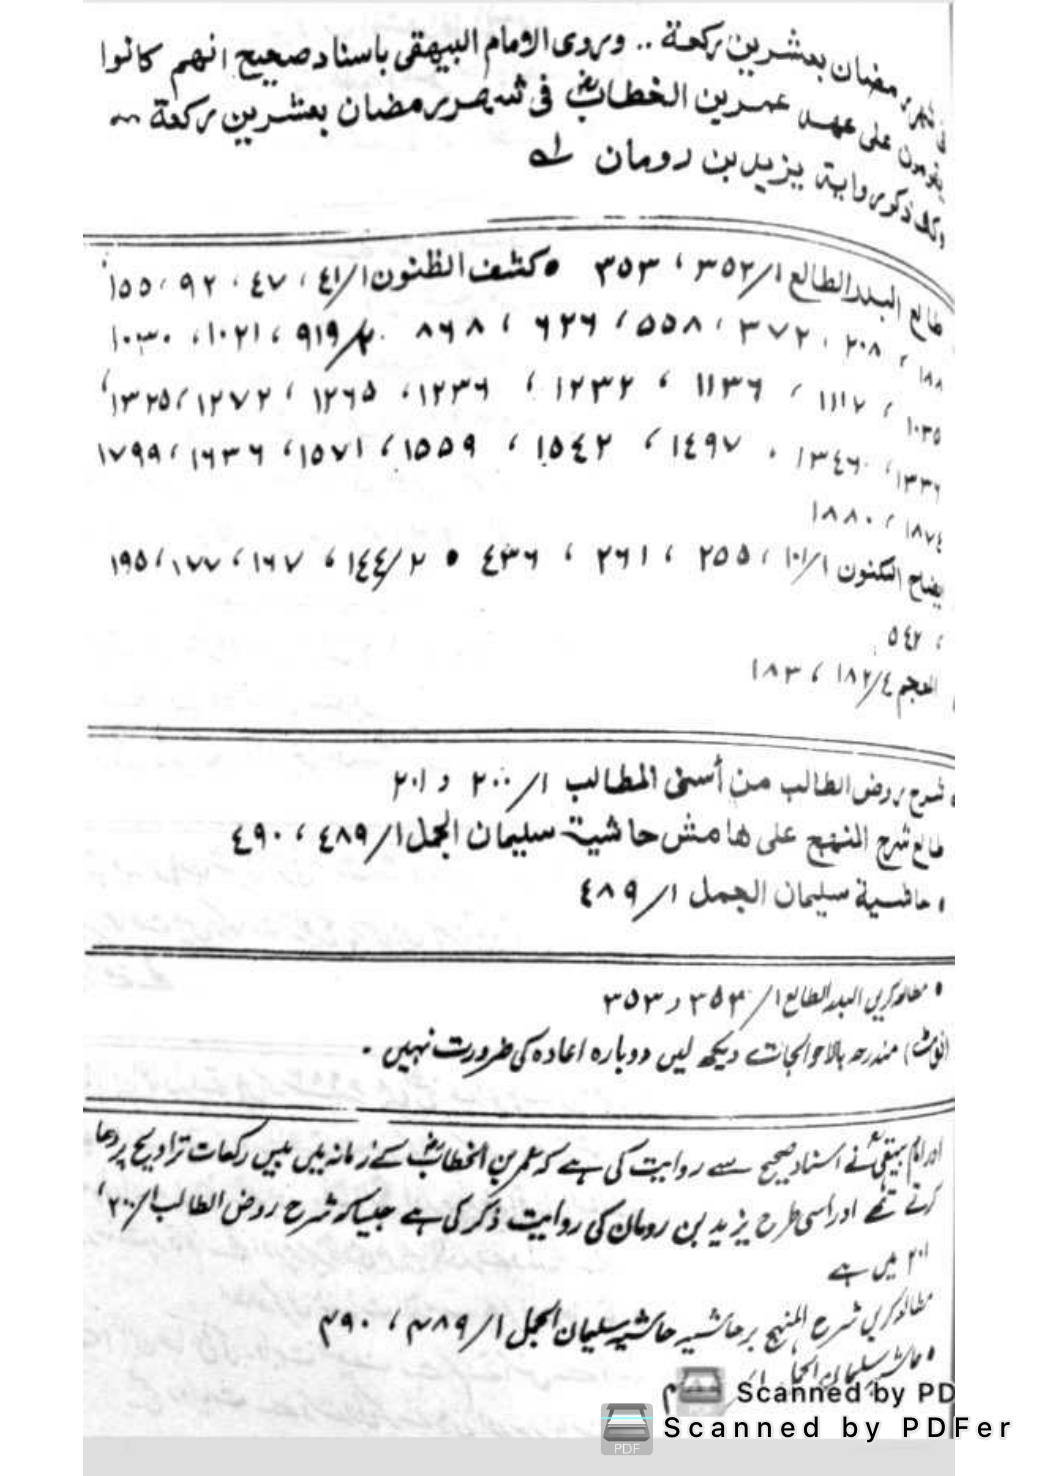 فى شهر رمضان بعشرين ركعة .. وروى الامام البيهقى باسناد صحيح انهم كانوا
يقومون على عهد عمر بن الخطابؓ فى شهر رمضان بعشرين ركعة ؁
وكذا ذكر رواية يزيد بن رومان لـه
طالع البدر الطالع ١/٣٥٢ ، ٣٥٣ • كشف الظنون ١/٤١ ، ٤٧ ، ٩٢ ، ١٥٥
١٨٨ ، ٢٠٨ ، ٣٧٢ ، ٥٥٨ ، ٦٢٦ ، ٨٦٨ ٢/٩١٩ ، ١٠٢١ ، ١٠٣٠
١٠٣٥ ، ١١١٧ ، ١١٣٦ ، ١٢٣٢ ، ١٢٣٦ ، ١٢٦٥ ، ١٢٧٢ ، ١٣٢٥ ،
١٣٣٦ ، ١٣٤٦ ، ١٤٩٧ ، ١٥٤٢ ، ١٥٥٩ ، ١٥٧١ ، ١٦٣٦ ، ١٧٩٩
١٨٧٤ ، ١٨٨٠
يضاح المكنون ١/١٠١ ، ٢٥٥ ، ٢٦١ ، ٤٣٦ • ٢/١٤٤ ، ١٦٧ ، ١٧٧ ، ١٩٥
، ٥٤٢
المعجم ٤/١٨٢ ، ١٨٣
شرح روض الطالب من أسنى المطالب ١/٢٠٠ و ٢٠١
طالع شرح المنهج على هامش حاشية سليمان الجمل ١/٤٨٩ ، ٤٩٠
• حاشية سليمان الجمل ١/٤٨٩
• مطالعہ کریں البدر الطالع ١/٣٥٢ و ٣٥٣
(نوٹ) مندرجہ بالا حوالجات دیکھ لیں دوبارہ اعادہ کی ضرورت نہیں ۔
اور امام بیہقیؒ نے اسناد صحیح سے روایت کی ہے کہ عمر بن الخطابؓ کے زمانہ میں بیس رکعات تراویح پڑھا
کرتے تھے اور اسی طرح یزید بن رومان کی روایت ذکر کی ہے جیسا کہ شرح روض الطالب ١/٢٠٠ ،
٢٠١ میں ہے
مطالعہ کریں شرح المنہج بر حاشیہ حاشیہ سلیمان الجمل ١/٤٨٩ ، ٤٩٠
• حاشیہ سلیمان الجمل
Scanned by PD
Scanned by PDFer
PDF